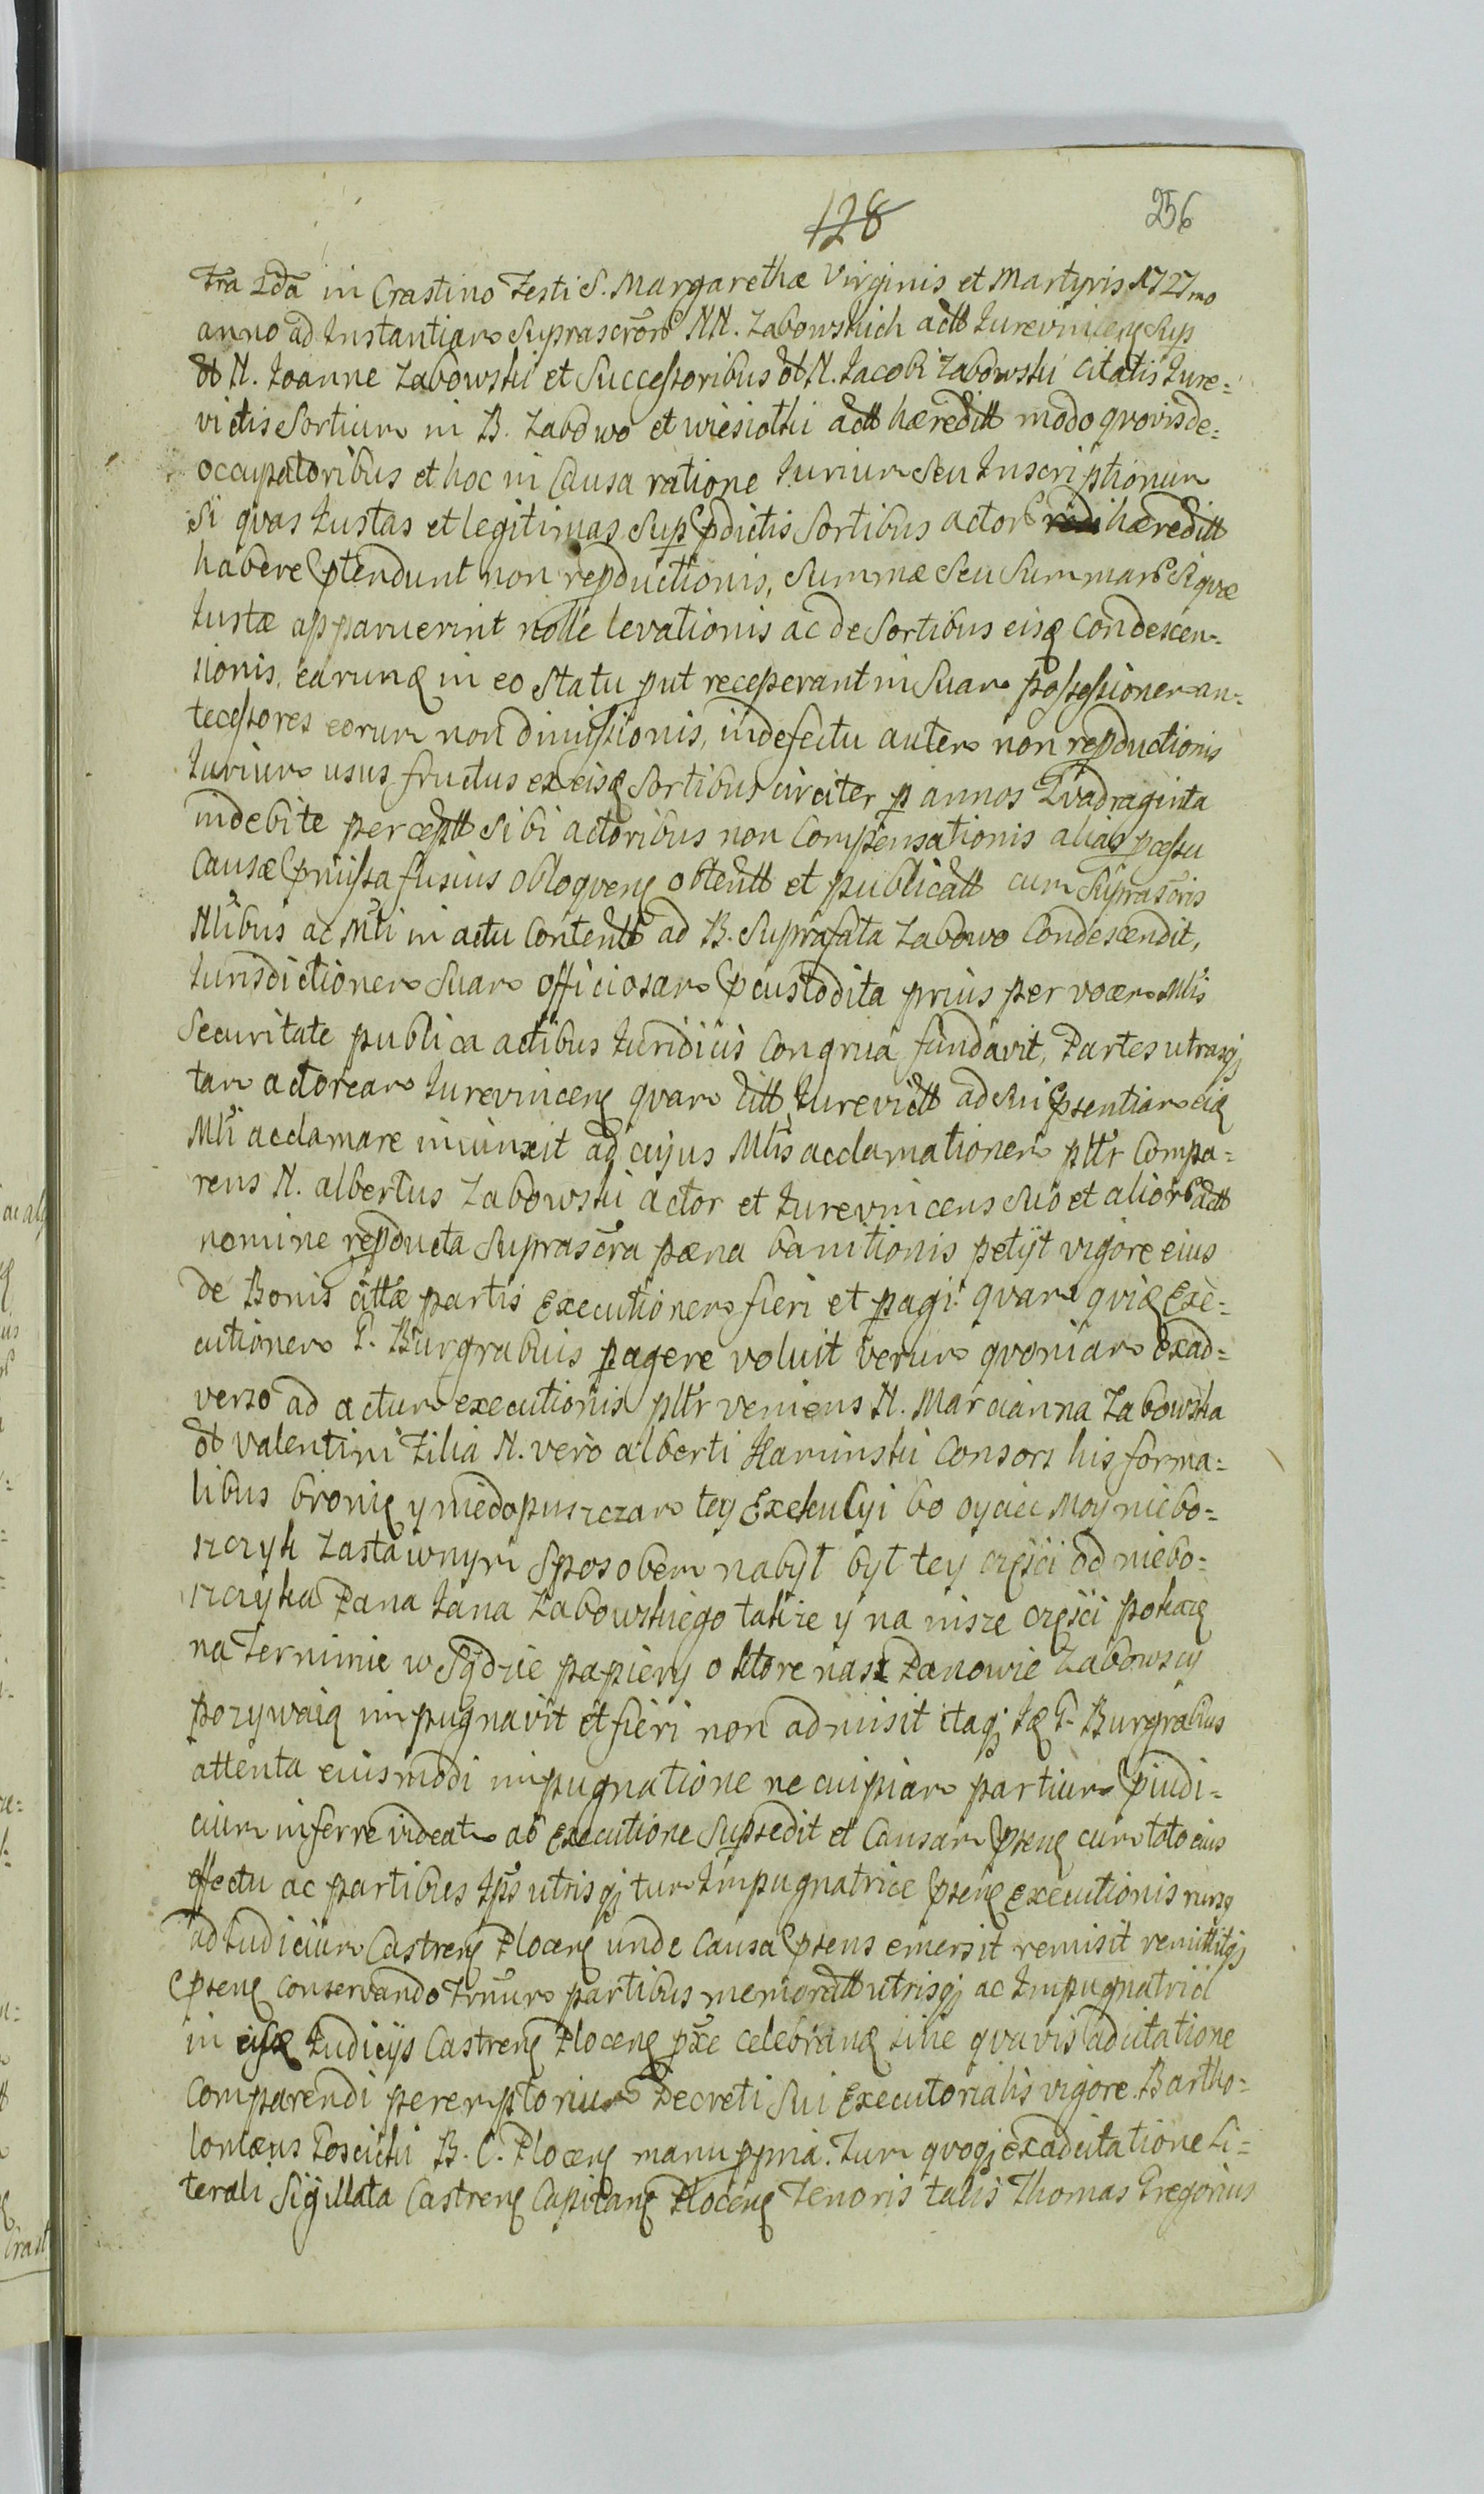 128 256
Fra 2da in Crastino Festi S. Margarethæ Virginis et Martyris 1727mo
anno ad Instantiam Suprascror NN. Zabowskich actt Jurevincen Sup
olt N. Joanne Zabowski et Successoribus olt N. Jacobi Zabowski Citatis Jure=
victis Sortium in B. Zabowo et wiesiołki actt hæreditt modo qvovis de=
occupatoribus et hoc in Causa ratione Jurium Seu Inscriptionum
Si qvas Justas et legitimas Sup pdictis Sortibus actor hæreditt
habere ptendunt non repductionis, Summæ Seu Summar Siqvæ
Justæ apparuerint nolle levationis ac de Sortibus eisq Condescen=
sionis, earumq in eo Statu put receperant in Suam possessionem an=
tecessores eorum non dimissionis, in defectu autem non repductionis
Jurium usus fructus ex eisq Sortibus circiter p annos Qvadraginta
indebite percæptt Sibi actoribus non Compensationis alias pcessu
Causæ pmissa fusius obloqven obtentt et publicatt cum Suprascris
Nlibus ac Mli in actu Contentt ad B. Suprafata Zabowo Condescendit,
Jurisdictionem Suam officiosam pcustodita prius per vocem Mlis
Securitate publica actibus Juridicis Congrua fundavit, Partes utrasqj
tam actoream Jurevincen qvam Citt Jurevictt ad Sui psentiam eiq
Mli acclamare iniunxit ad cujus Mlis acclamationem pltr Compa=
rens N. albertus Zabowski actor et Jurevincens Suo et alior actt
nomine repducta Suprascra pæna banitionis petijt vigore eius
de Bonis cittæ partis Executionem fieri et pagi. qvam qviq Exe=
cutionem G. Burgrabius pagere voluit verum qvoniam Exad=
verso ad actum executionis pltr veniens N. Marcianna Zabowska
olt Valentini Filia N. vero alberti Kaminski Consors his forma=
libus bronię y niedopuszczam tey Exekucyi bo oyciec Moy niebo=
szczyk zastawnym Sposobem nabył był tey częsci od niebo=
szczyka Pana Jana Zabowskiego także y na insze częsci pokażę
na Terminie w Sądzie papiery o ktore nas Panowie Zabowscy
pozywaią impugnavit et fieri non admisit itaqj Jq G. Burgrabius
attenta eiusmodi impugnatione ne cuipiam partium pjudi=
cium inferre videatr ab Executione Supsedit et Causam psen cum toto eius
effectu ac partibus Ips utrisqj tum Impugnatrice psen executionis rursq
ad Judicium Castren Plocen unde Causa psens emersit remisit remittitqj
psen conservando Trmum partibus memoratt utrisqj ac Impugnatrici
in eisq Judicijs Castren Plocen pxe celebran sine qvavis adcitatione
Comparendi peremptorium Decreti Sui Executorialis vigore. Bartho=
lomæus Poscicki B. C. Plocen manu ppria. Tum qvoqj ex adcitatione Li=
terali Sigillata Castren Capitan Plocen Tenoris talis Thomas Gregorius